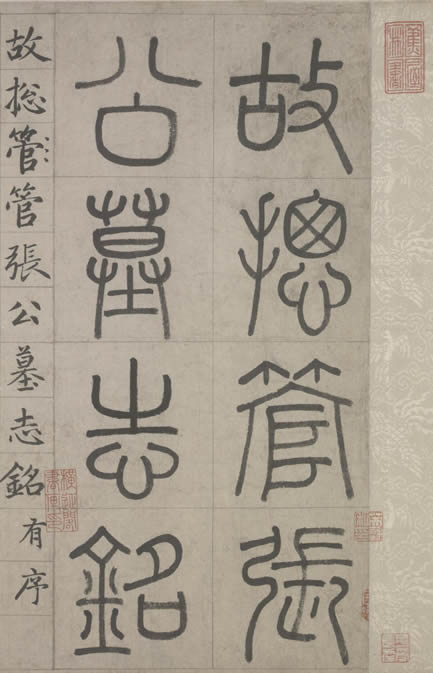 故揔管張
公墓志銘
故揔管管張公墓志銘有序